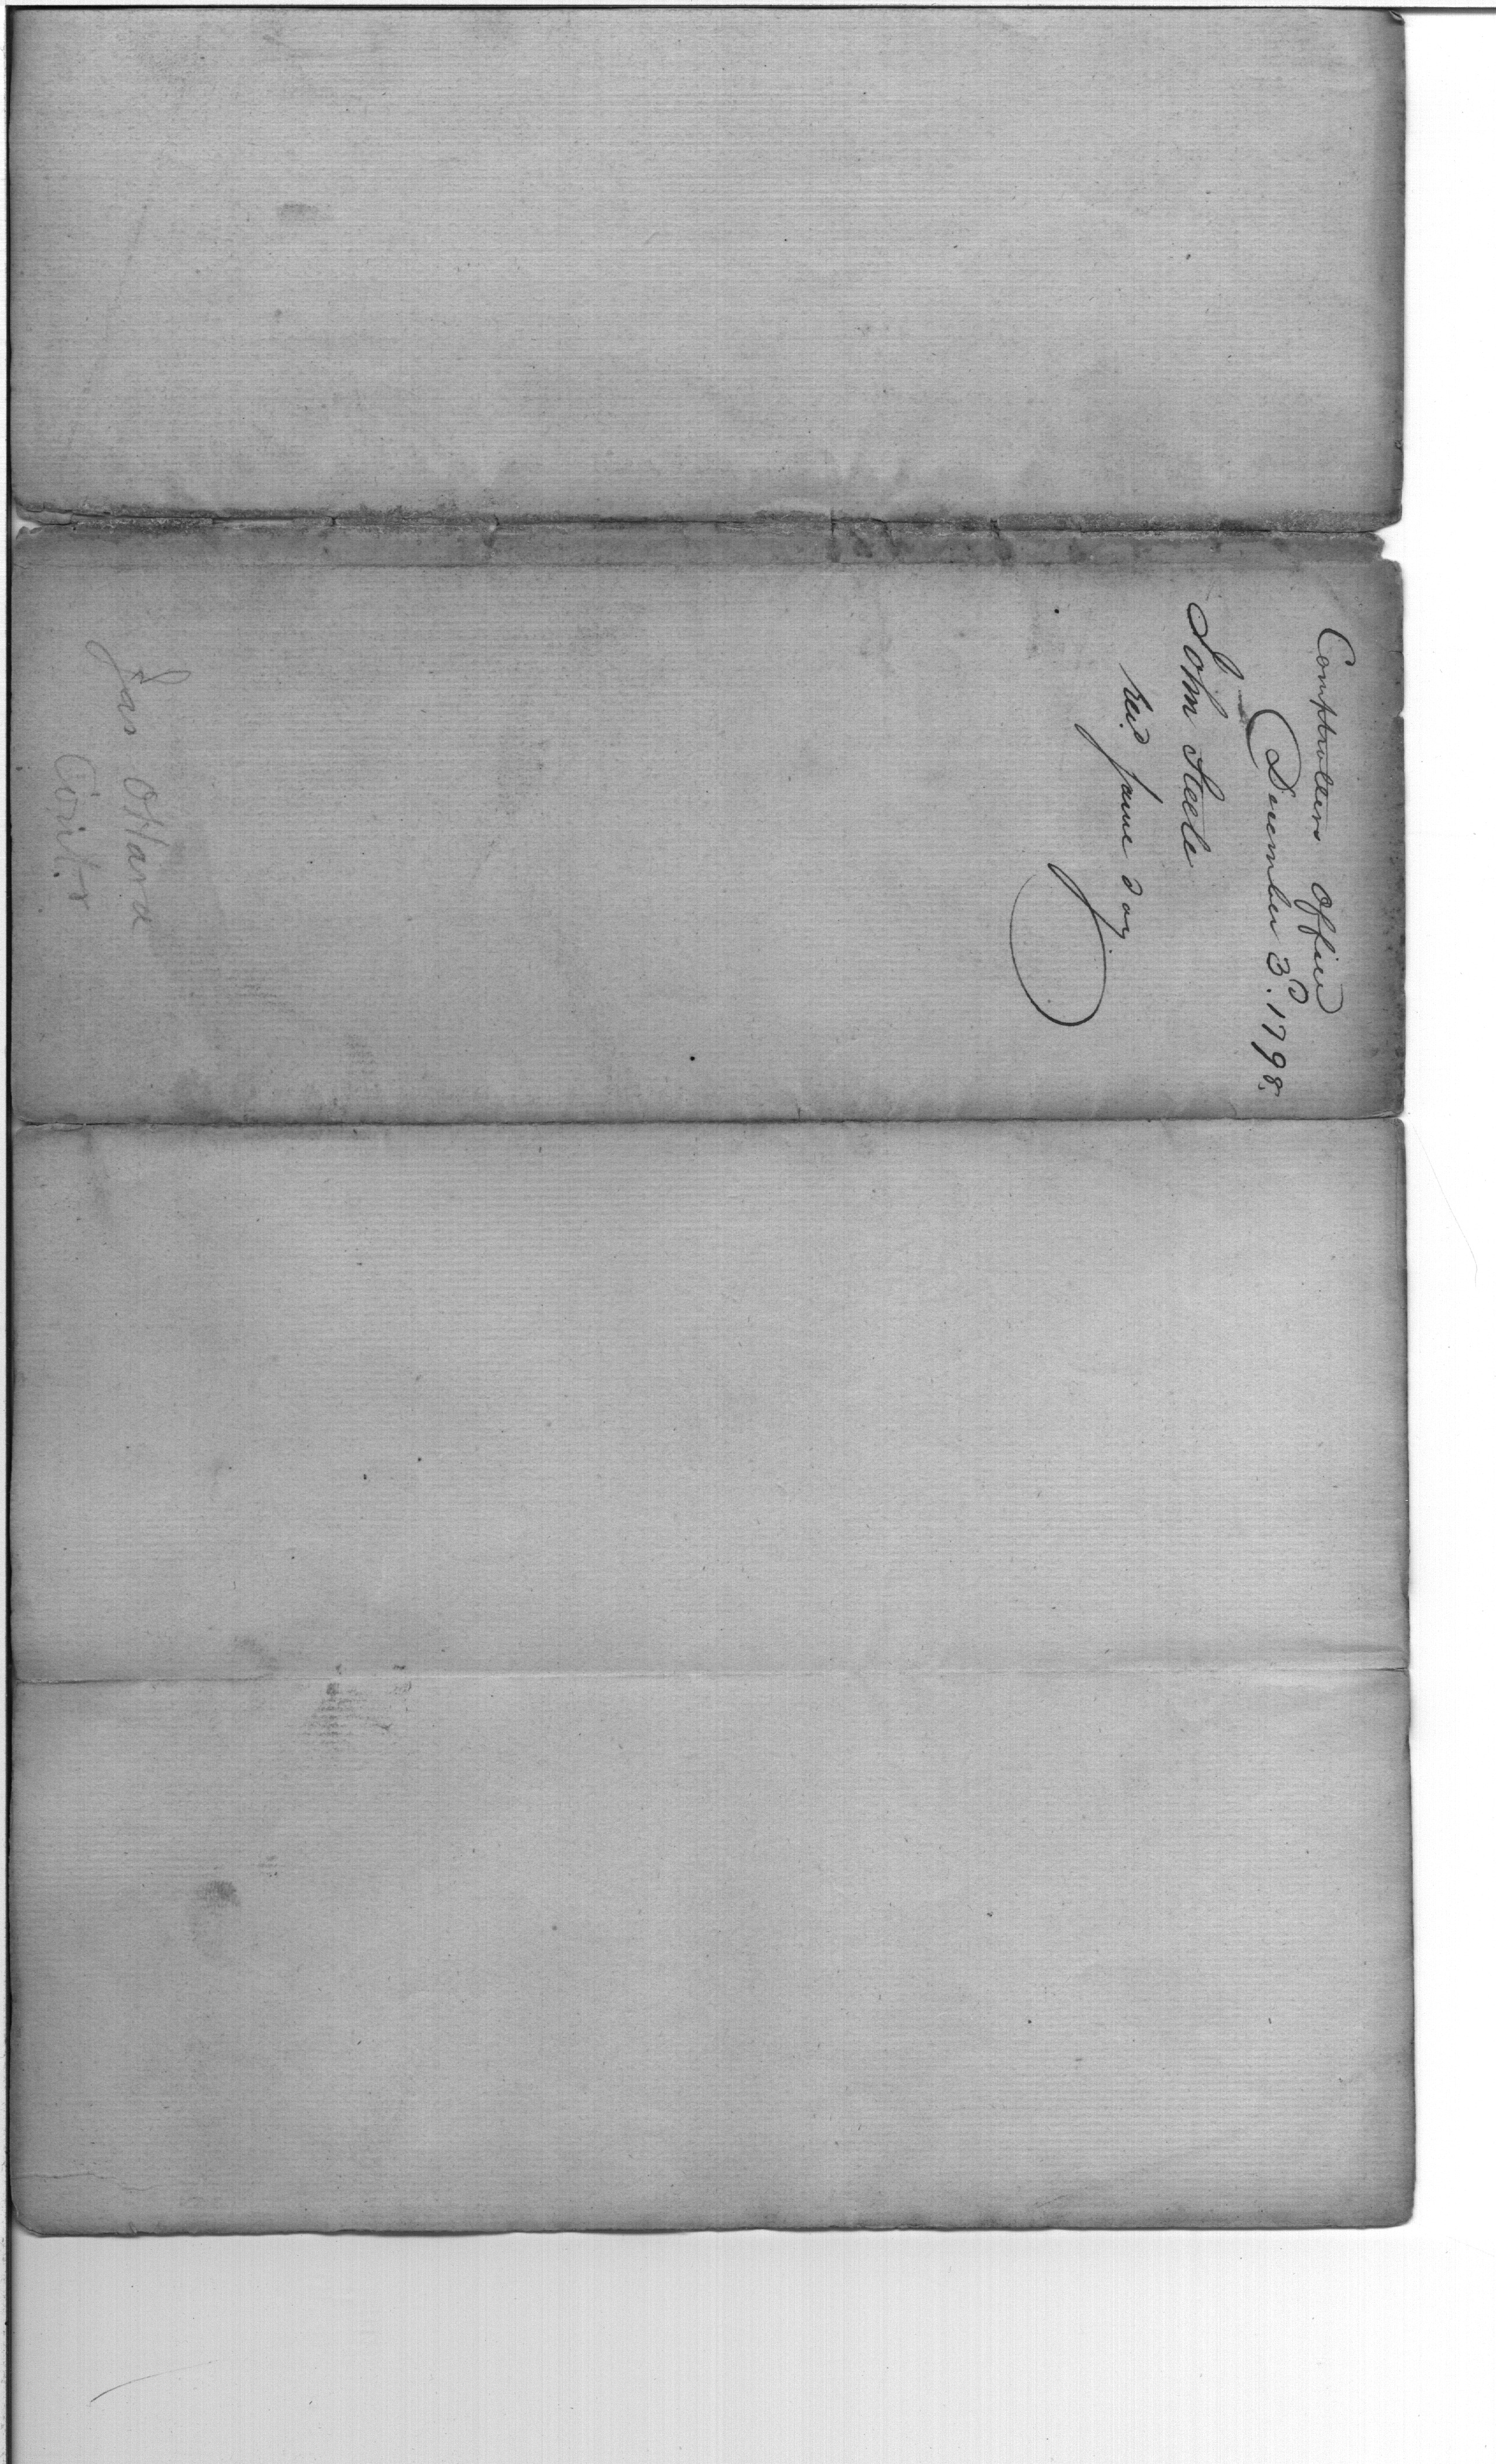 Comptrollers Office
December 3d. 1798.
John Steele
Recd same day
Jas OHara
Contr